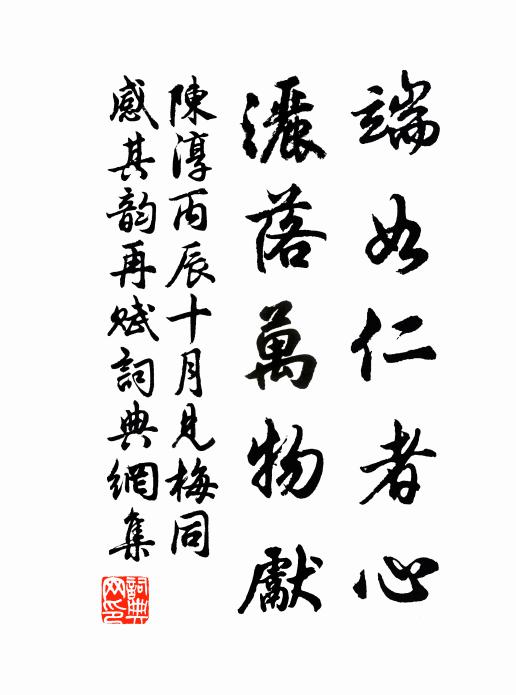 端如仁者心
灑落萬物獻
陳淳丙辰十月見梅同
感其韵再賦詞典網集
詞典
网印